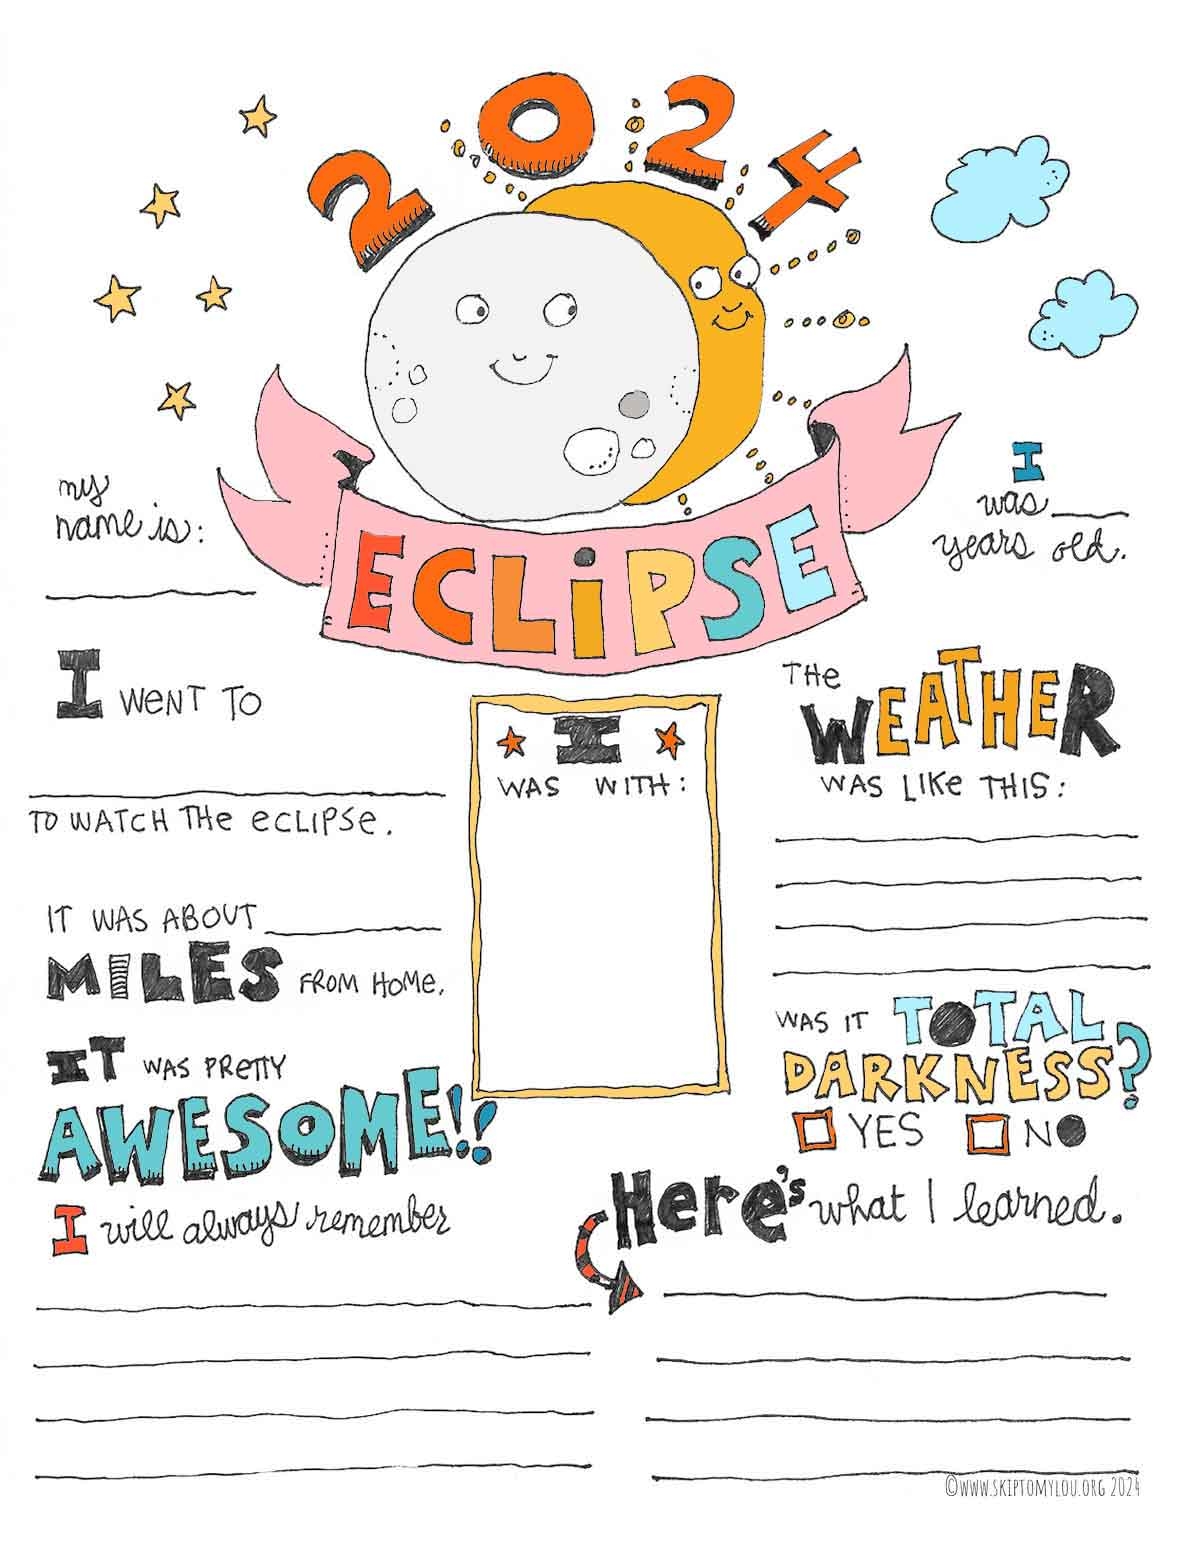 2024
ECLiPSE
my
name is:
I
was
years old.
I WENT TO
TO WATCH THE ECLIPSE.
IT WAS ABOUT
MILES FROM HOME.
IT WAS PRETTY
AWESOME!!
I will always remember
I
WAS WITH:
THE WEATHER
WAS LIKE THIS:
WAS IT TOTAL
DARKNESS?
YES NO
Here's what I learned.
©WWW.SKIPTOMYLOU.ORG 2024